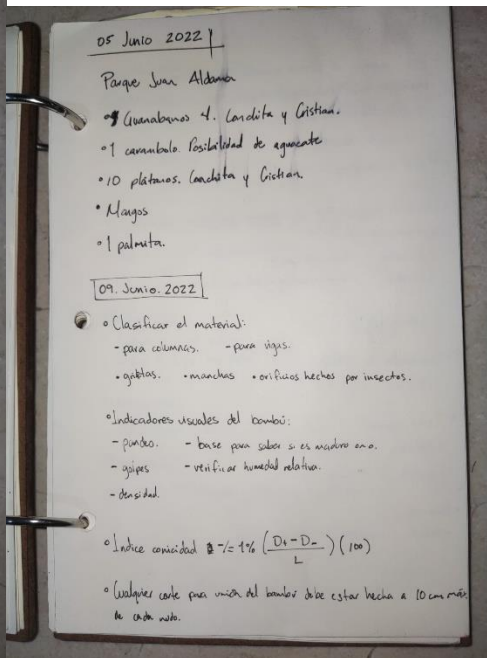 05 Junio 2022
Parque Juan Aldama
• Guanabanos 4. Conchita y Cristian.
• 1 carambolo. Posibilidad de aguacate
• 10 plátanos. Conchita y Cristian.
• Mangos
• 1 palmita.
09. Junio. 2022
• Clasificar el material:
- para columnas. - para vigas.
• grietas. • manchas • orificios hechos por insectos.
• Indicadores visuales del bambú:
- pandeo. - base para saber si es maduro o no.
- golpes - verificar humedad relativa.
- densidad
• Indice conicidad -/= 1% (D+ - D- / L) (100)
• Cualquier corte para unión del bambú debe estar hecha a 10 cms máx.
de cada nudo.